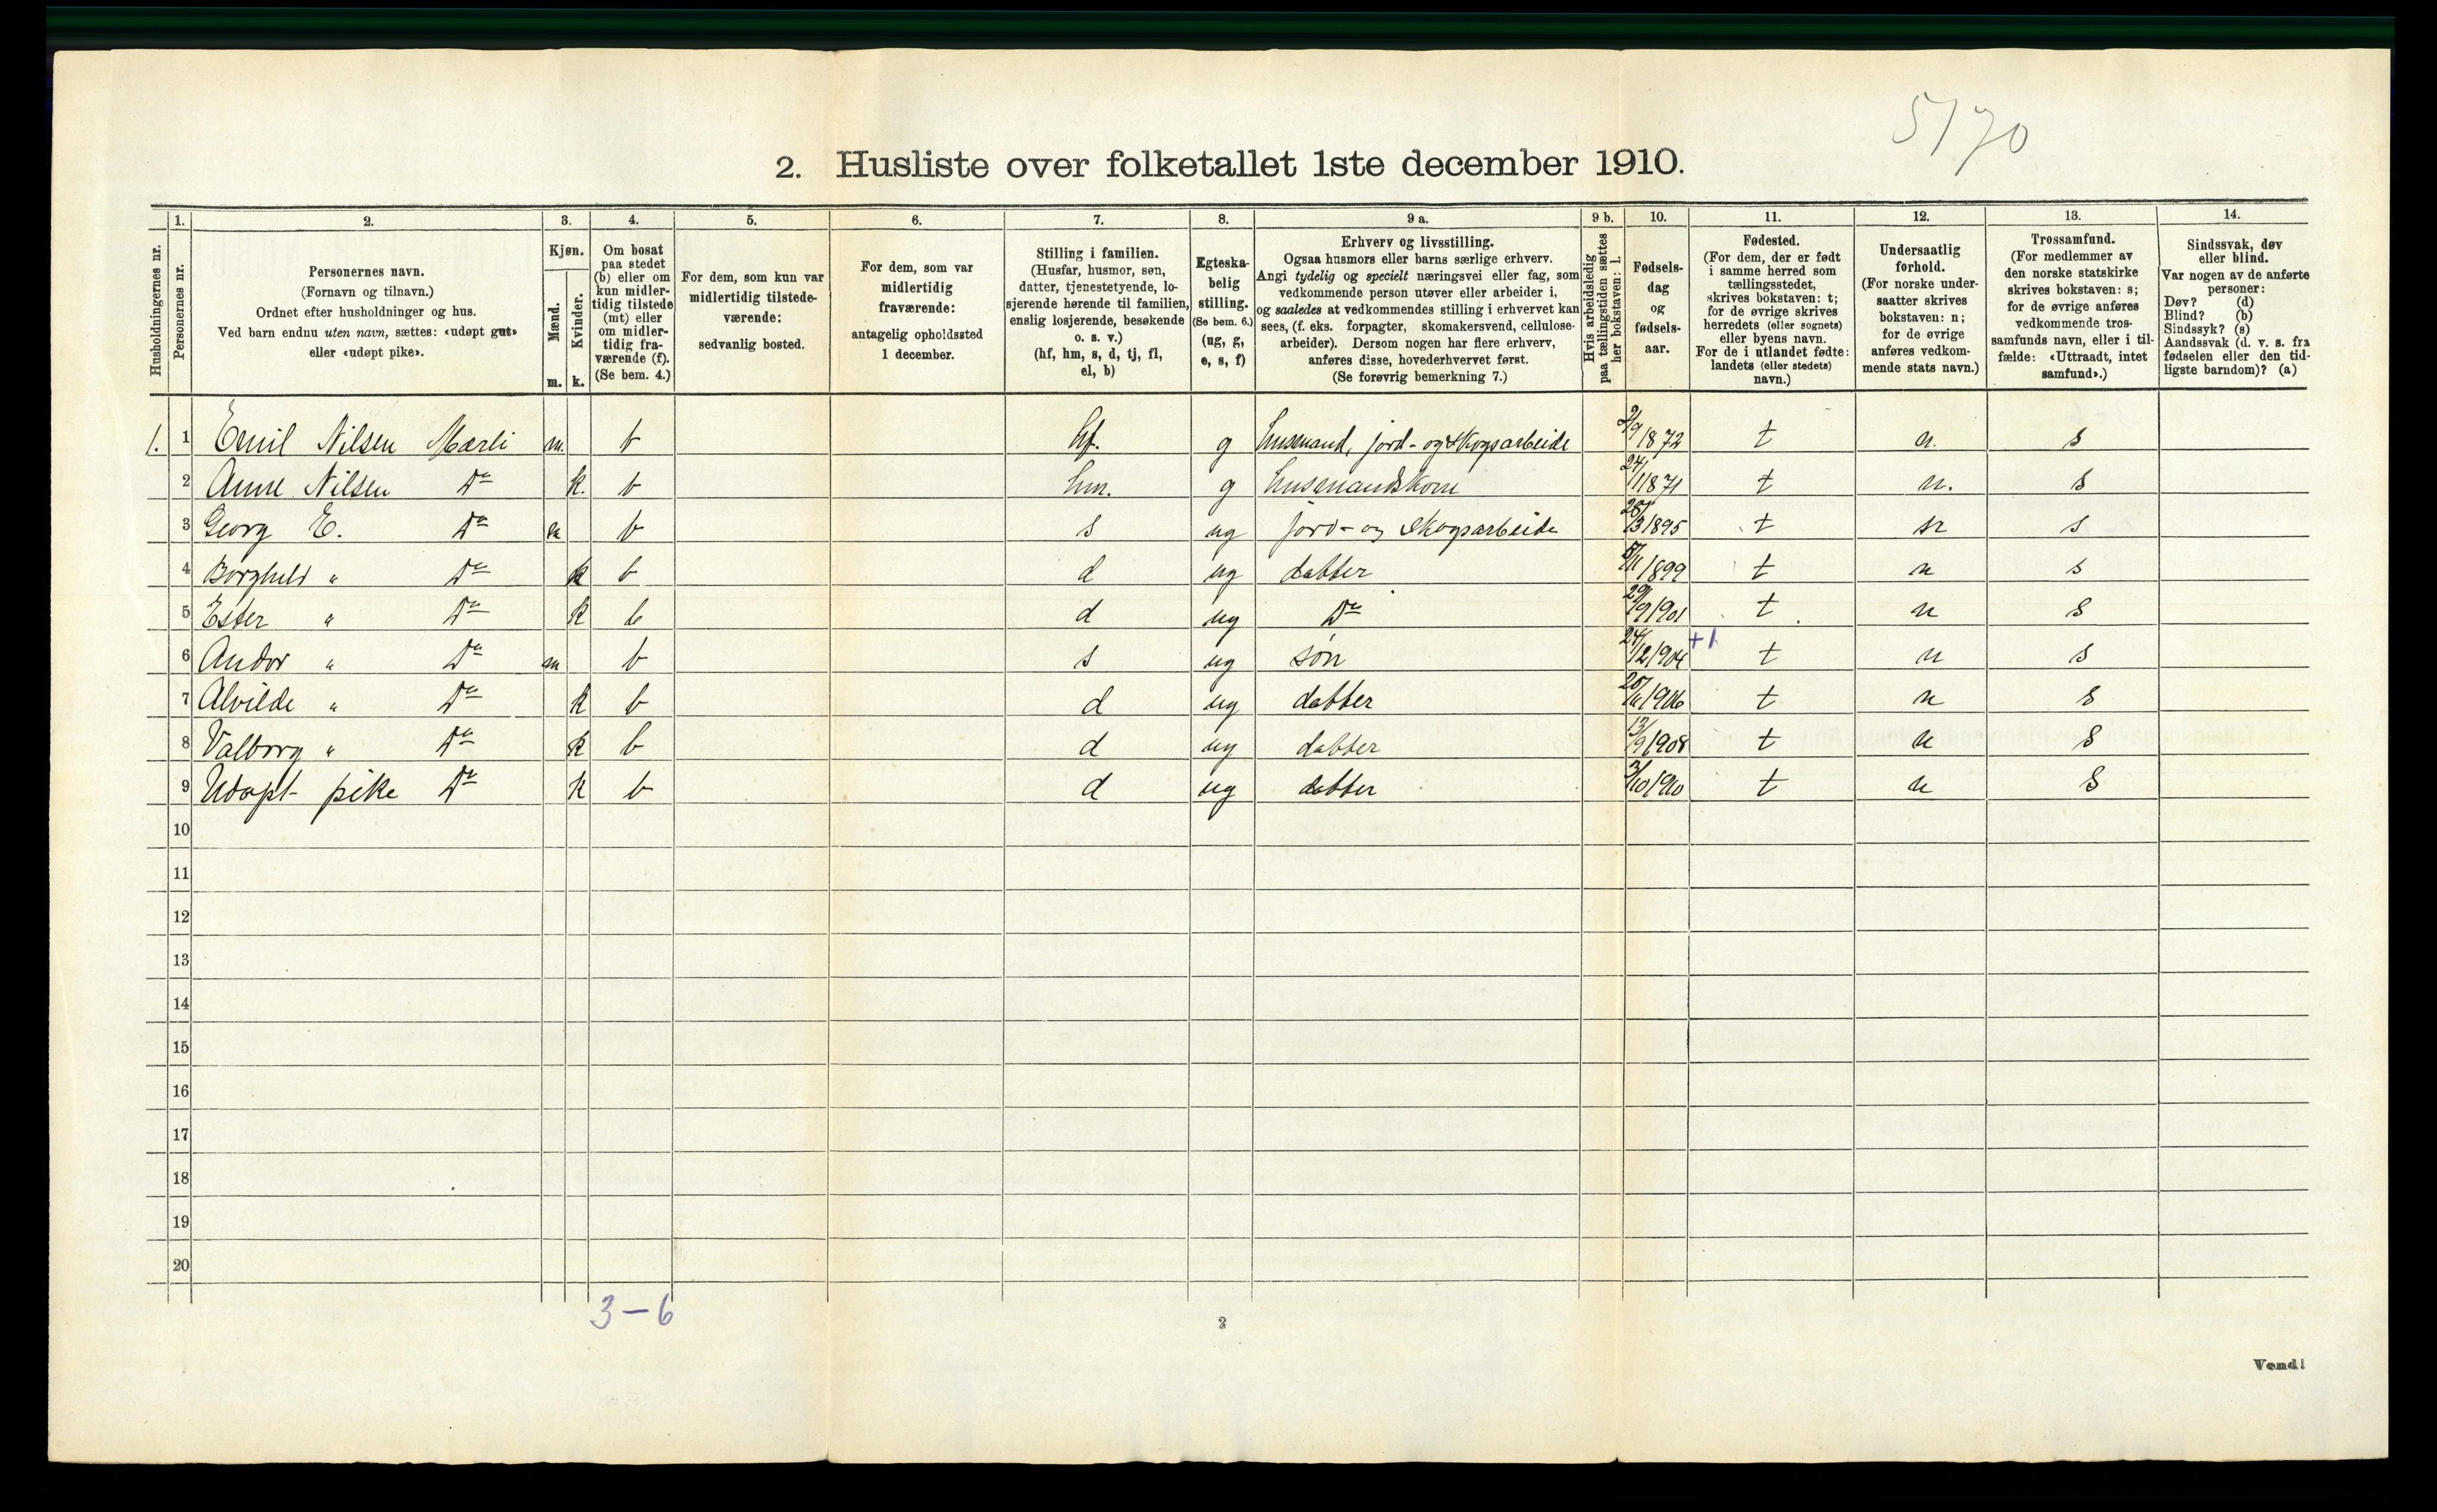 5170
2. Husliste over folketallet 1ste december 1910.
Husholdningernes nr.
1. Personernes nr.
2. Personernes navn.
(Fornavn og tilnavn.)
Ordnet efter husholdninger og hus.
Ved barn endnu uten navn, sættes: «udøpt gut»
eller «udøpt pike».
3. Kjøn.
Mænd. m.
Kvinder. k.
4. Om bosat
paa stedet
(b) eller om
kun midler-
tidig tilstede
(mt) eller
om midler-
tidig fra-
værende (f).
(Se bem. 4.)
5. For dem, som kun var
midlertidig tilstede-
værende:
sedvanlig bosted.
6. For dem, som var
midlertidig
fraværende:
antagelig opholdssted
1 december.
7. Stilling i familien.
(Husfar, husmor, søn,
datter, tjenestetyende, lo-
sjerende hørende til familien,
enslig losjerende, besøkende
o. s. v.)
(hf, hm, s, d, tj, fl,
el, b)
8. Egteska-
belig
stilling.
(Se bem. 6.)
(ug, g,
e, s, f)
9 a. Erhverv og livsstilling.
Ogsaa husmors eller barns særlige erhverv.
Angi tydelig og specielt næringsvei eller fag, som
vedkommende person utøver eller arbeider i,
og saaledes at vedkommendes stilling i erhvervet kan
sees, (f. eks. forpagter, skomakersvend, cellulose-
arbeider). Dersom nogen har flere erhverv,
anføres disse, hovederhvervet først.
(Se forøvrig bemerkning 7.)
9 b. Hvis arbeidsledig
paa tællingstiden sættes
her bokstaven: l.
10. Fødsels-
dag
og
fødsels-
aar.
11. Fødested.
(For dem, der er født
i samme herred som
tællingsstedet,
skrives bokstaven: t;
for de øvrige skrives
herredets (eller sognets)
eller byens navn.
For de i utlandet fødte:
landets (eller stedets)
navn.)
12. Undersaatlig
forhold.
(For norske under-
saatter skrives
bokstaven: n;
for de øvrige
anføres vedkom-
mende stats navn.)
13. Trossamfund.
(For medlemmer av
den norske statskirke
skrives bokstaven: s;
for de øvrige anføres
vedkommende tros-
samfunds navn, eller i til-
fælde: «Uttraadt, intet
samfund».)
14. Sindssvak, døv
eller blind.
Var nogen av de anførte
personer:
Døv? (d)
Blind? (b)
Sindssyk? (s)
Aandssvak (d. v. s. fra
fødselen eller den tid-
ligste barndom)? (a)
1. 1 Emil Nilsen Mærli m. b hf. g husmand, jord- og skogsarbeide 2/9 1872 t n. s
2 Anne Nilsen Do k. b hm. g husmandskone 24/11 1871 t n. s
3 Georg E. Do m b s ug jord- og skogsarbeide 28/3 1895 t n s
4 Borghild " Do k b d ug datter 1899 t n s
5 Ester " Do k b d ug Do 29/9 1901 t n s
6 Andor " Do m b s ug søn 24/12 1904 +1 t n s
7 Alvilde " Do k b d ug datter 1906 t n s
8 Valborg " Do k b d ug datter 13/9 1908 t n s
9 Udøpt pike Do k b d ug datter 3/10 1910 t n s
10
11
12
13
14
15
16
17
18
19
20
3-6
2
Vend!